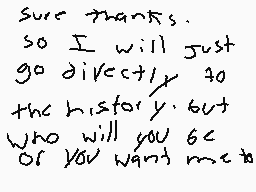 sure thanks.
so I will just
go directly to
the history. but
who will you be
or you want me to